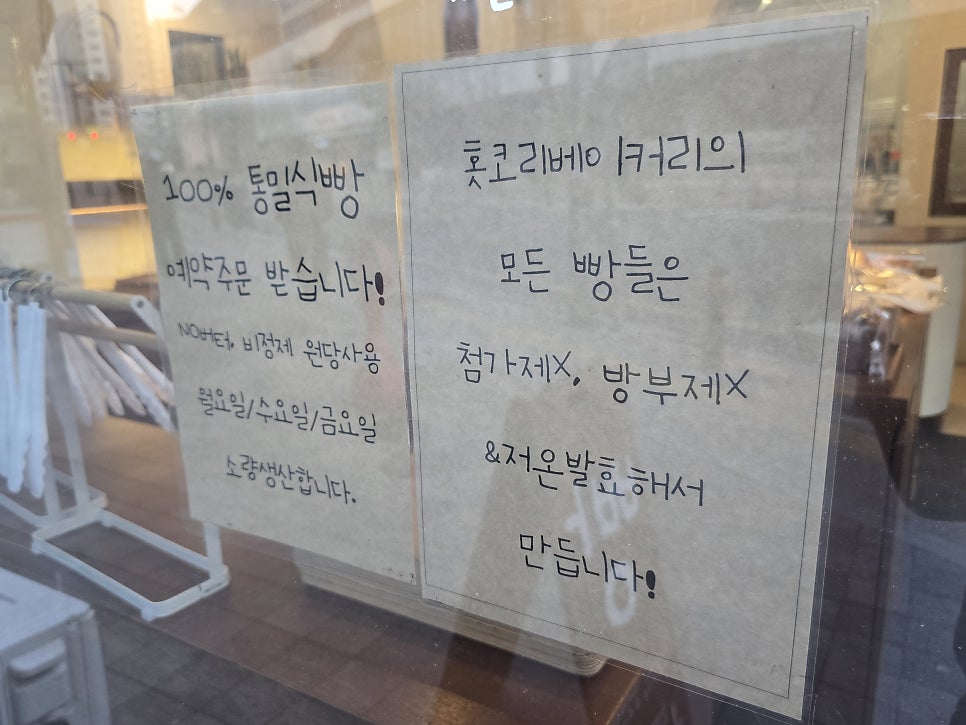 100% 통밀식빵
예약주문 받습니다!
NO버터, 비정제 원당사용
월요일/수요일/금요일
소량생산합니다.
홋코리베이커리의
모든 빵들은
첨가제X, 방부제X
&저온발효해서
만듭니다!